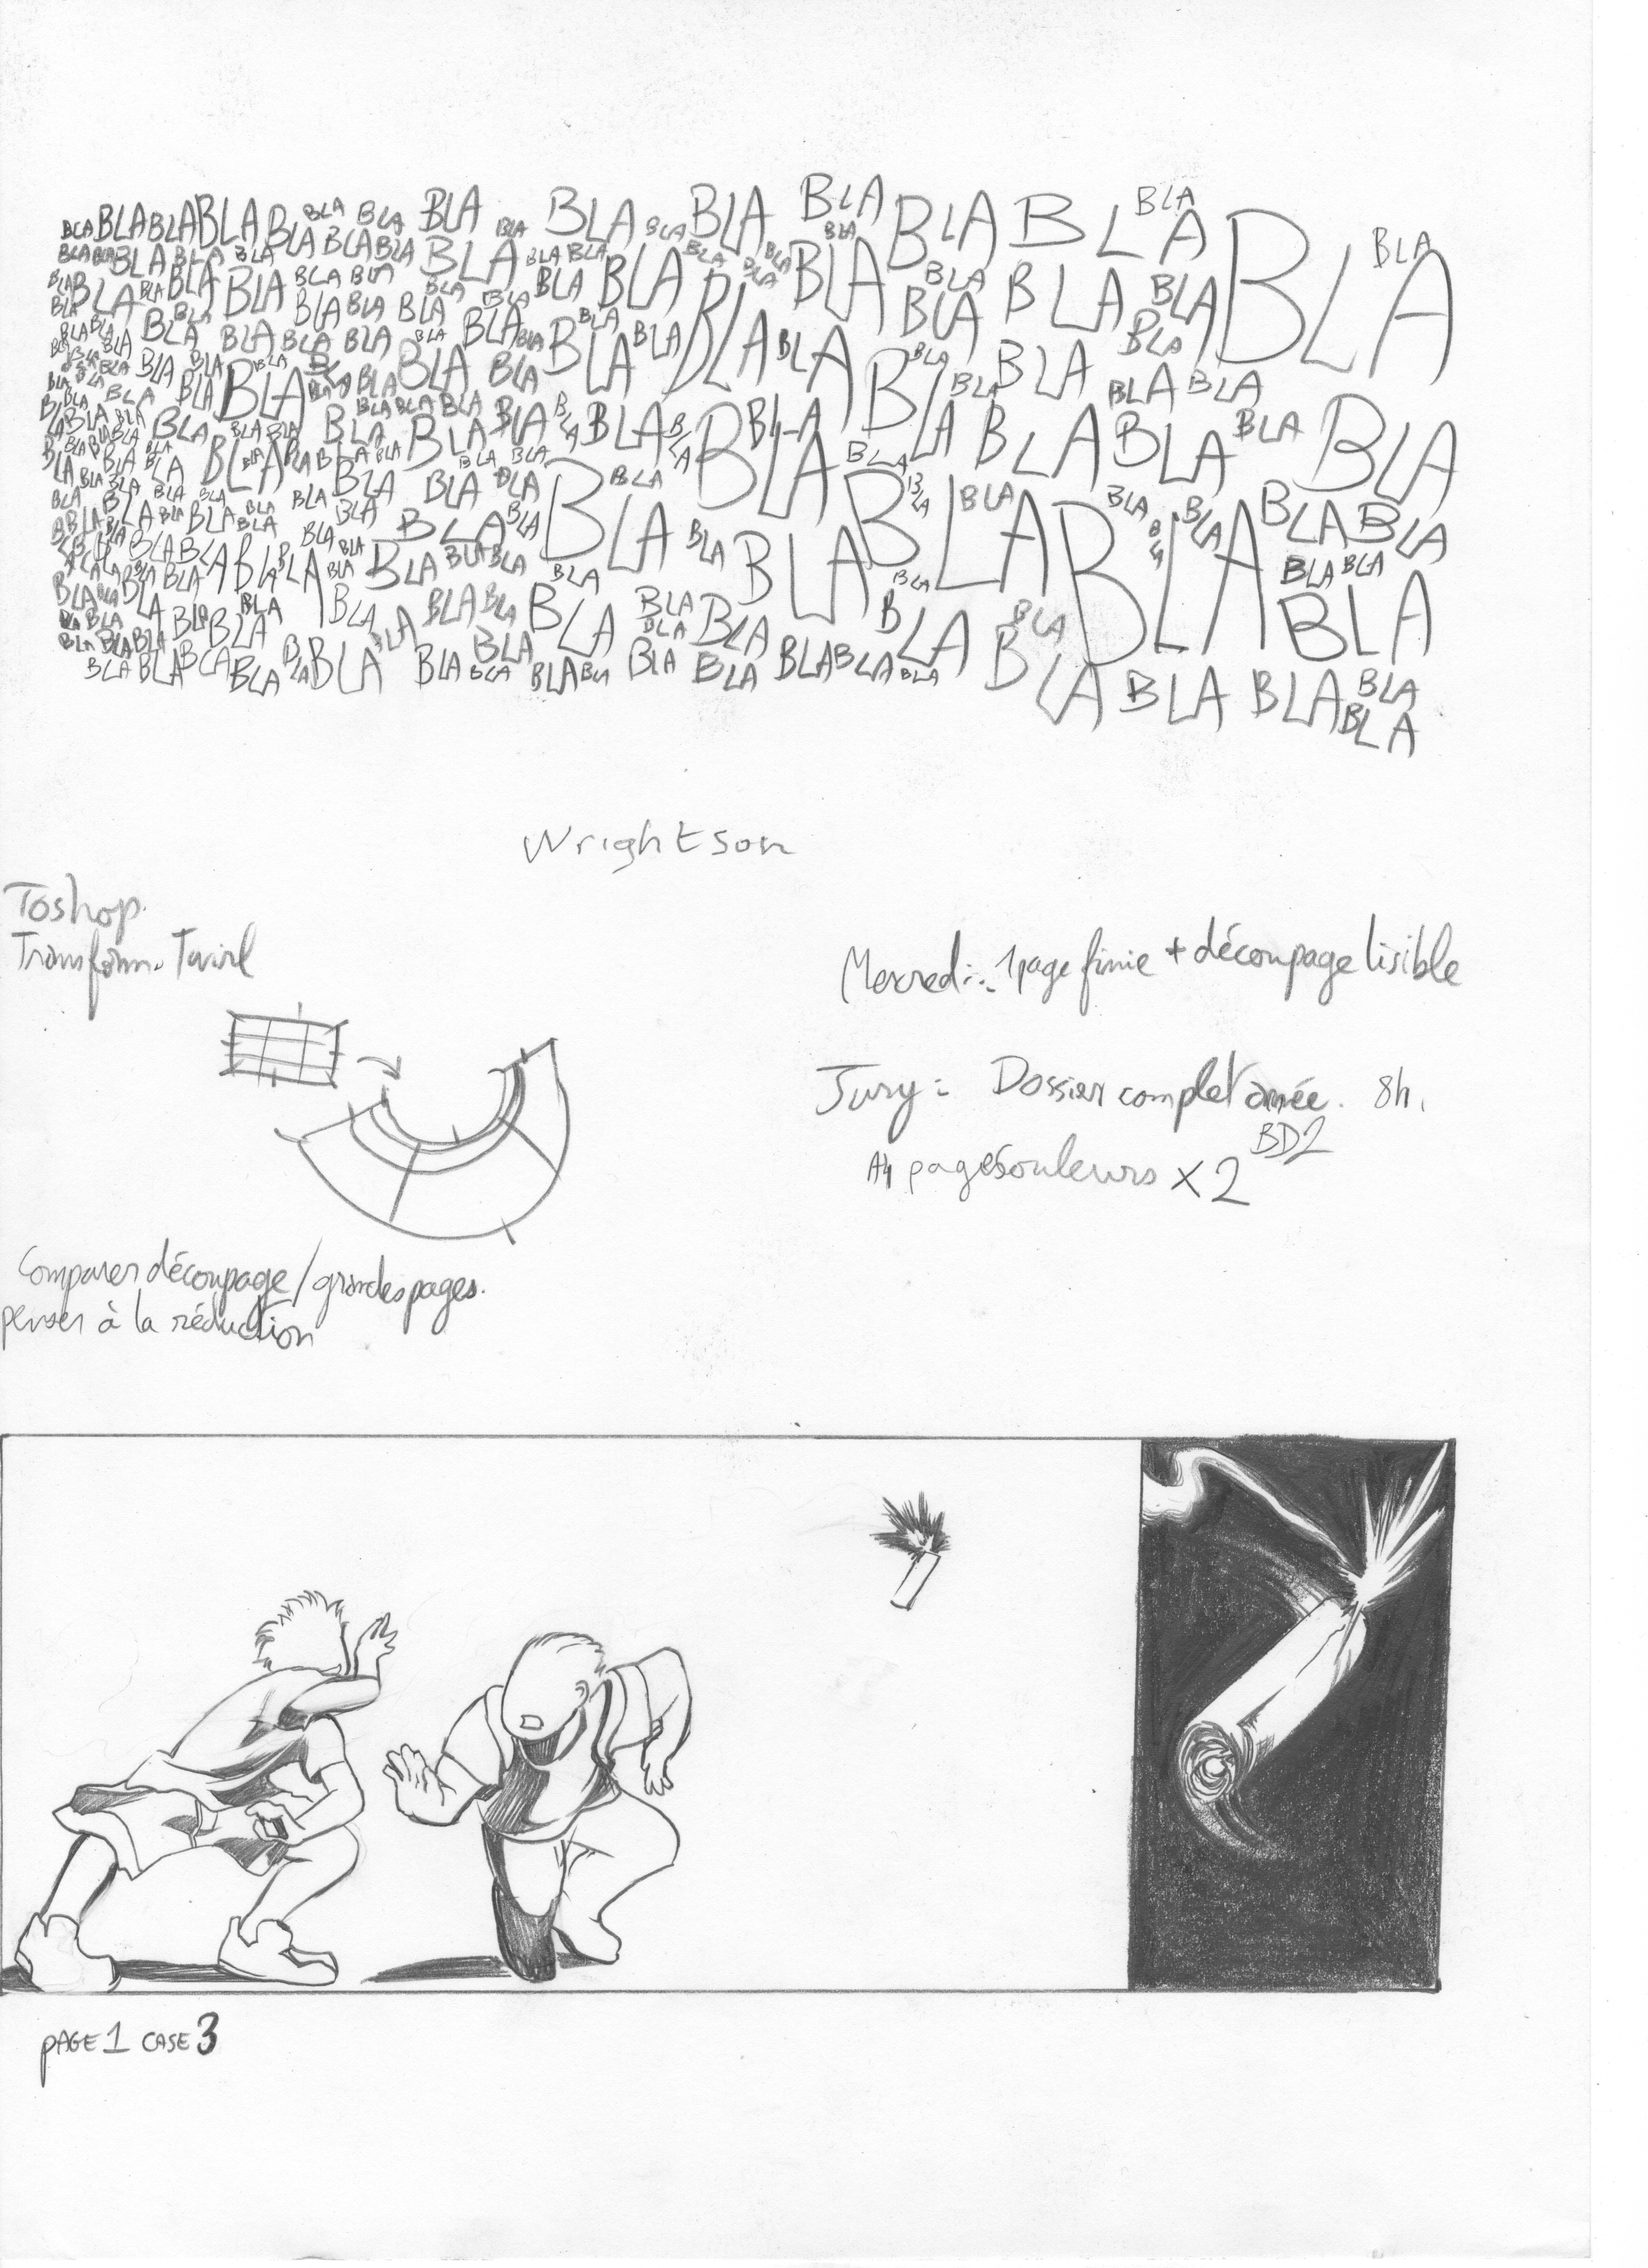 BLA BLA BLA BLA BLA BLA BLA BLA BLA BLA BLA BLA BLA BLA BLA BLA BLA BLA
BLA BLA BLA BLA BLA BLA BLA BLA BLA BLA BLA BLA BLA BLA BLA BLA BLA BLA
BLA BLA BLA BLA BLA BLA BLA BLA BLA BLA BLA BLA BLA BLA BLA BLA BLA
BLA BLA BLA BLA BLA BLA BLA BLA BLA BLA BLA BLA BLA BLA BLA BLA BLA
BLA BLA BLA BLA BLA BLA BLA BLA BLA BLA BLA BLA BLA BLA BLA BLA
BLA BLA BLA BLA BLA BLA BLA BLA BLA BLA BLA BLA BLA BLA BLA BLA
BLA BLA BLA BLA BLA BLA BLA BLA BLA BLA BLA BLA BLA BLA BLA BLA
BLA BLA BLA BLA BLA BLA BLA BLA BLA BLA BLA BLA BLA BLA BLA
BLA BLA BLA BLA BLA BLA BLA BLA BLA BLA BLA BLA BLA BLA BLA
BLA BLA BLA BLA BLA BLA BLA BLA BLA BLA BLA BLA BLA BLA
BLA BLA BLA BLA BLA BLA BLA BLA BLA BLA BLA BLA BLA BLA BLA BLA
Wrightson
Toshop.
Transform. Twirl
Mercredi: 1 page finie + découpage lisible
Jury: Dossier complet année. 8h.
BD2
A4 pages couleurs x2
Comparer découpage/grandes pages.
penser à la réduction
PAGE 1 CASE 3